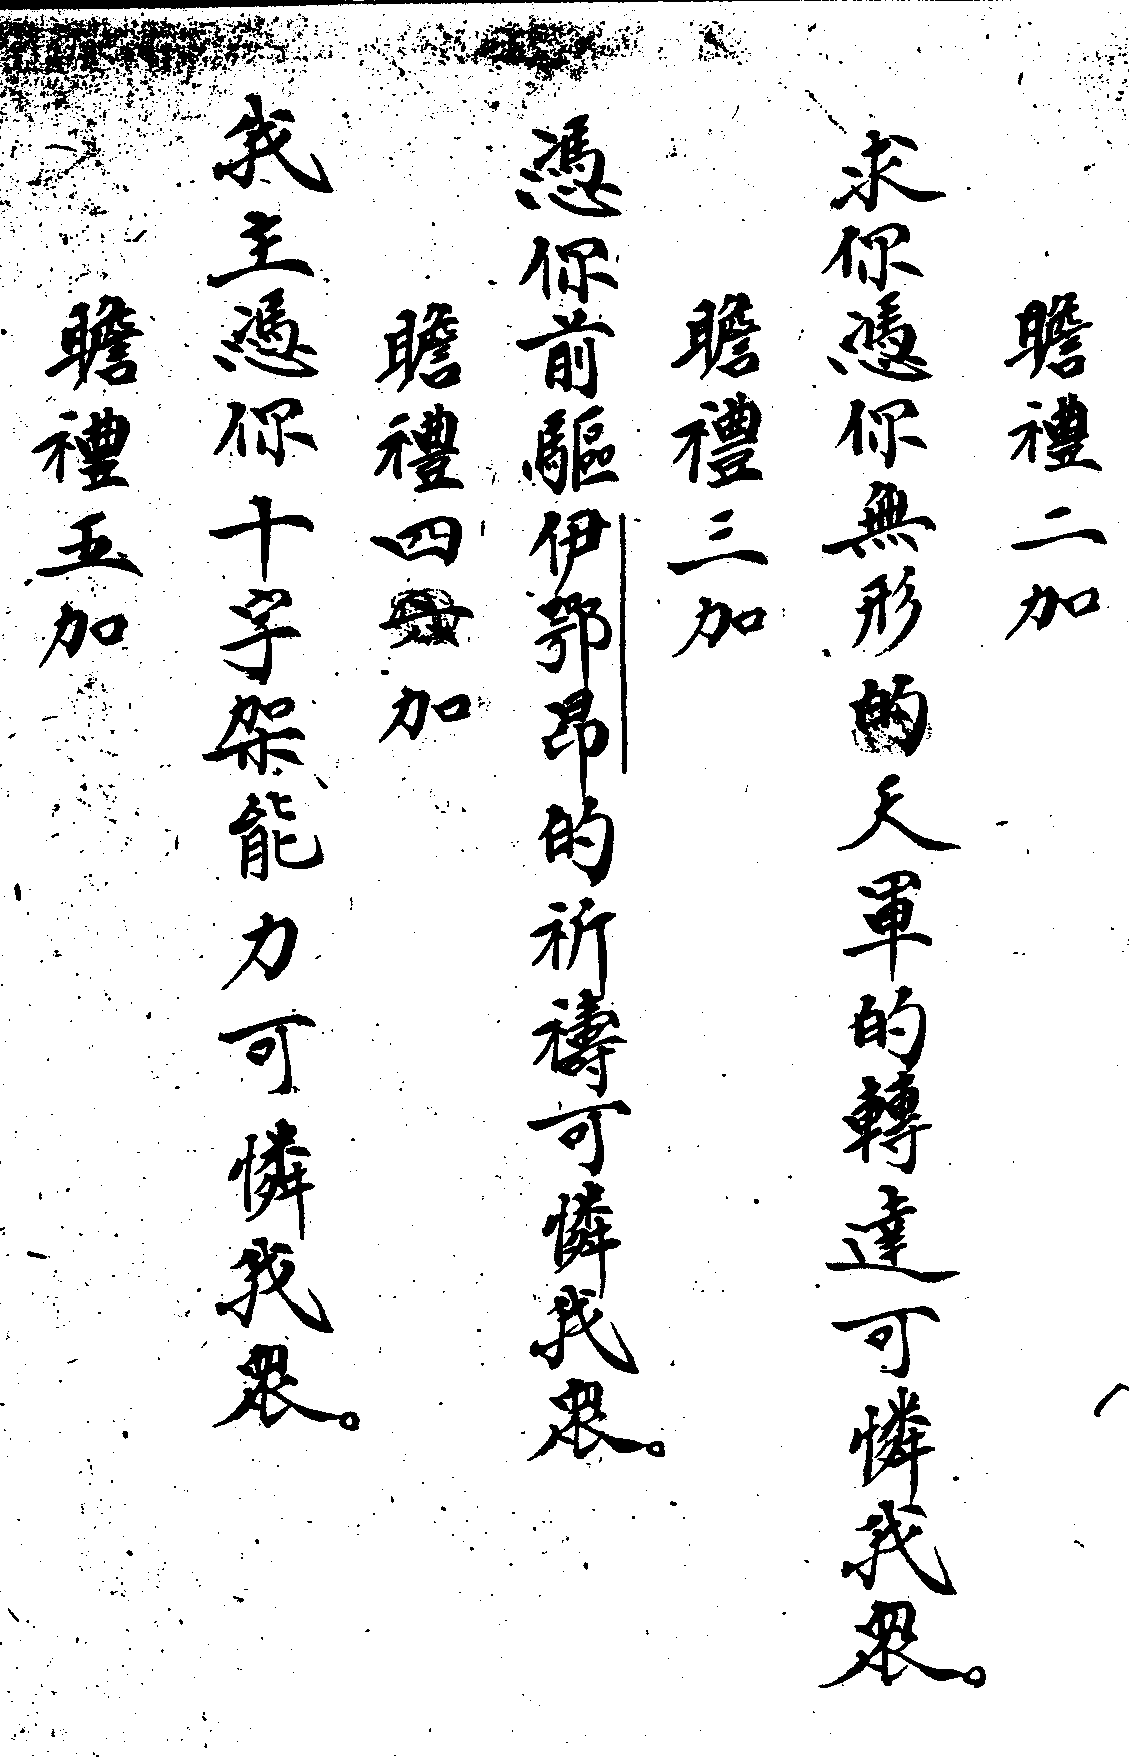 瞻禮二加
求你憑你無形的天軍的轉達可憐我眾。
瞻禮三加
憑你前驅伊鄂昂的祈禱可憐我眾。
瞻禮四加
我主憑你十字架能力可憐我眾。
瞻禮五加